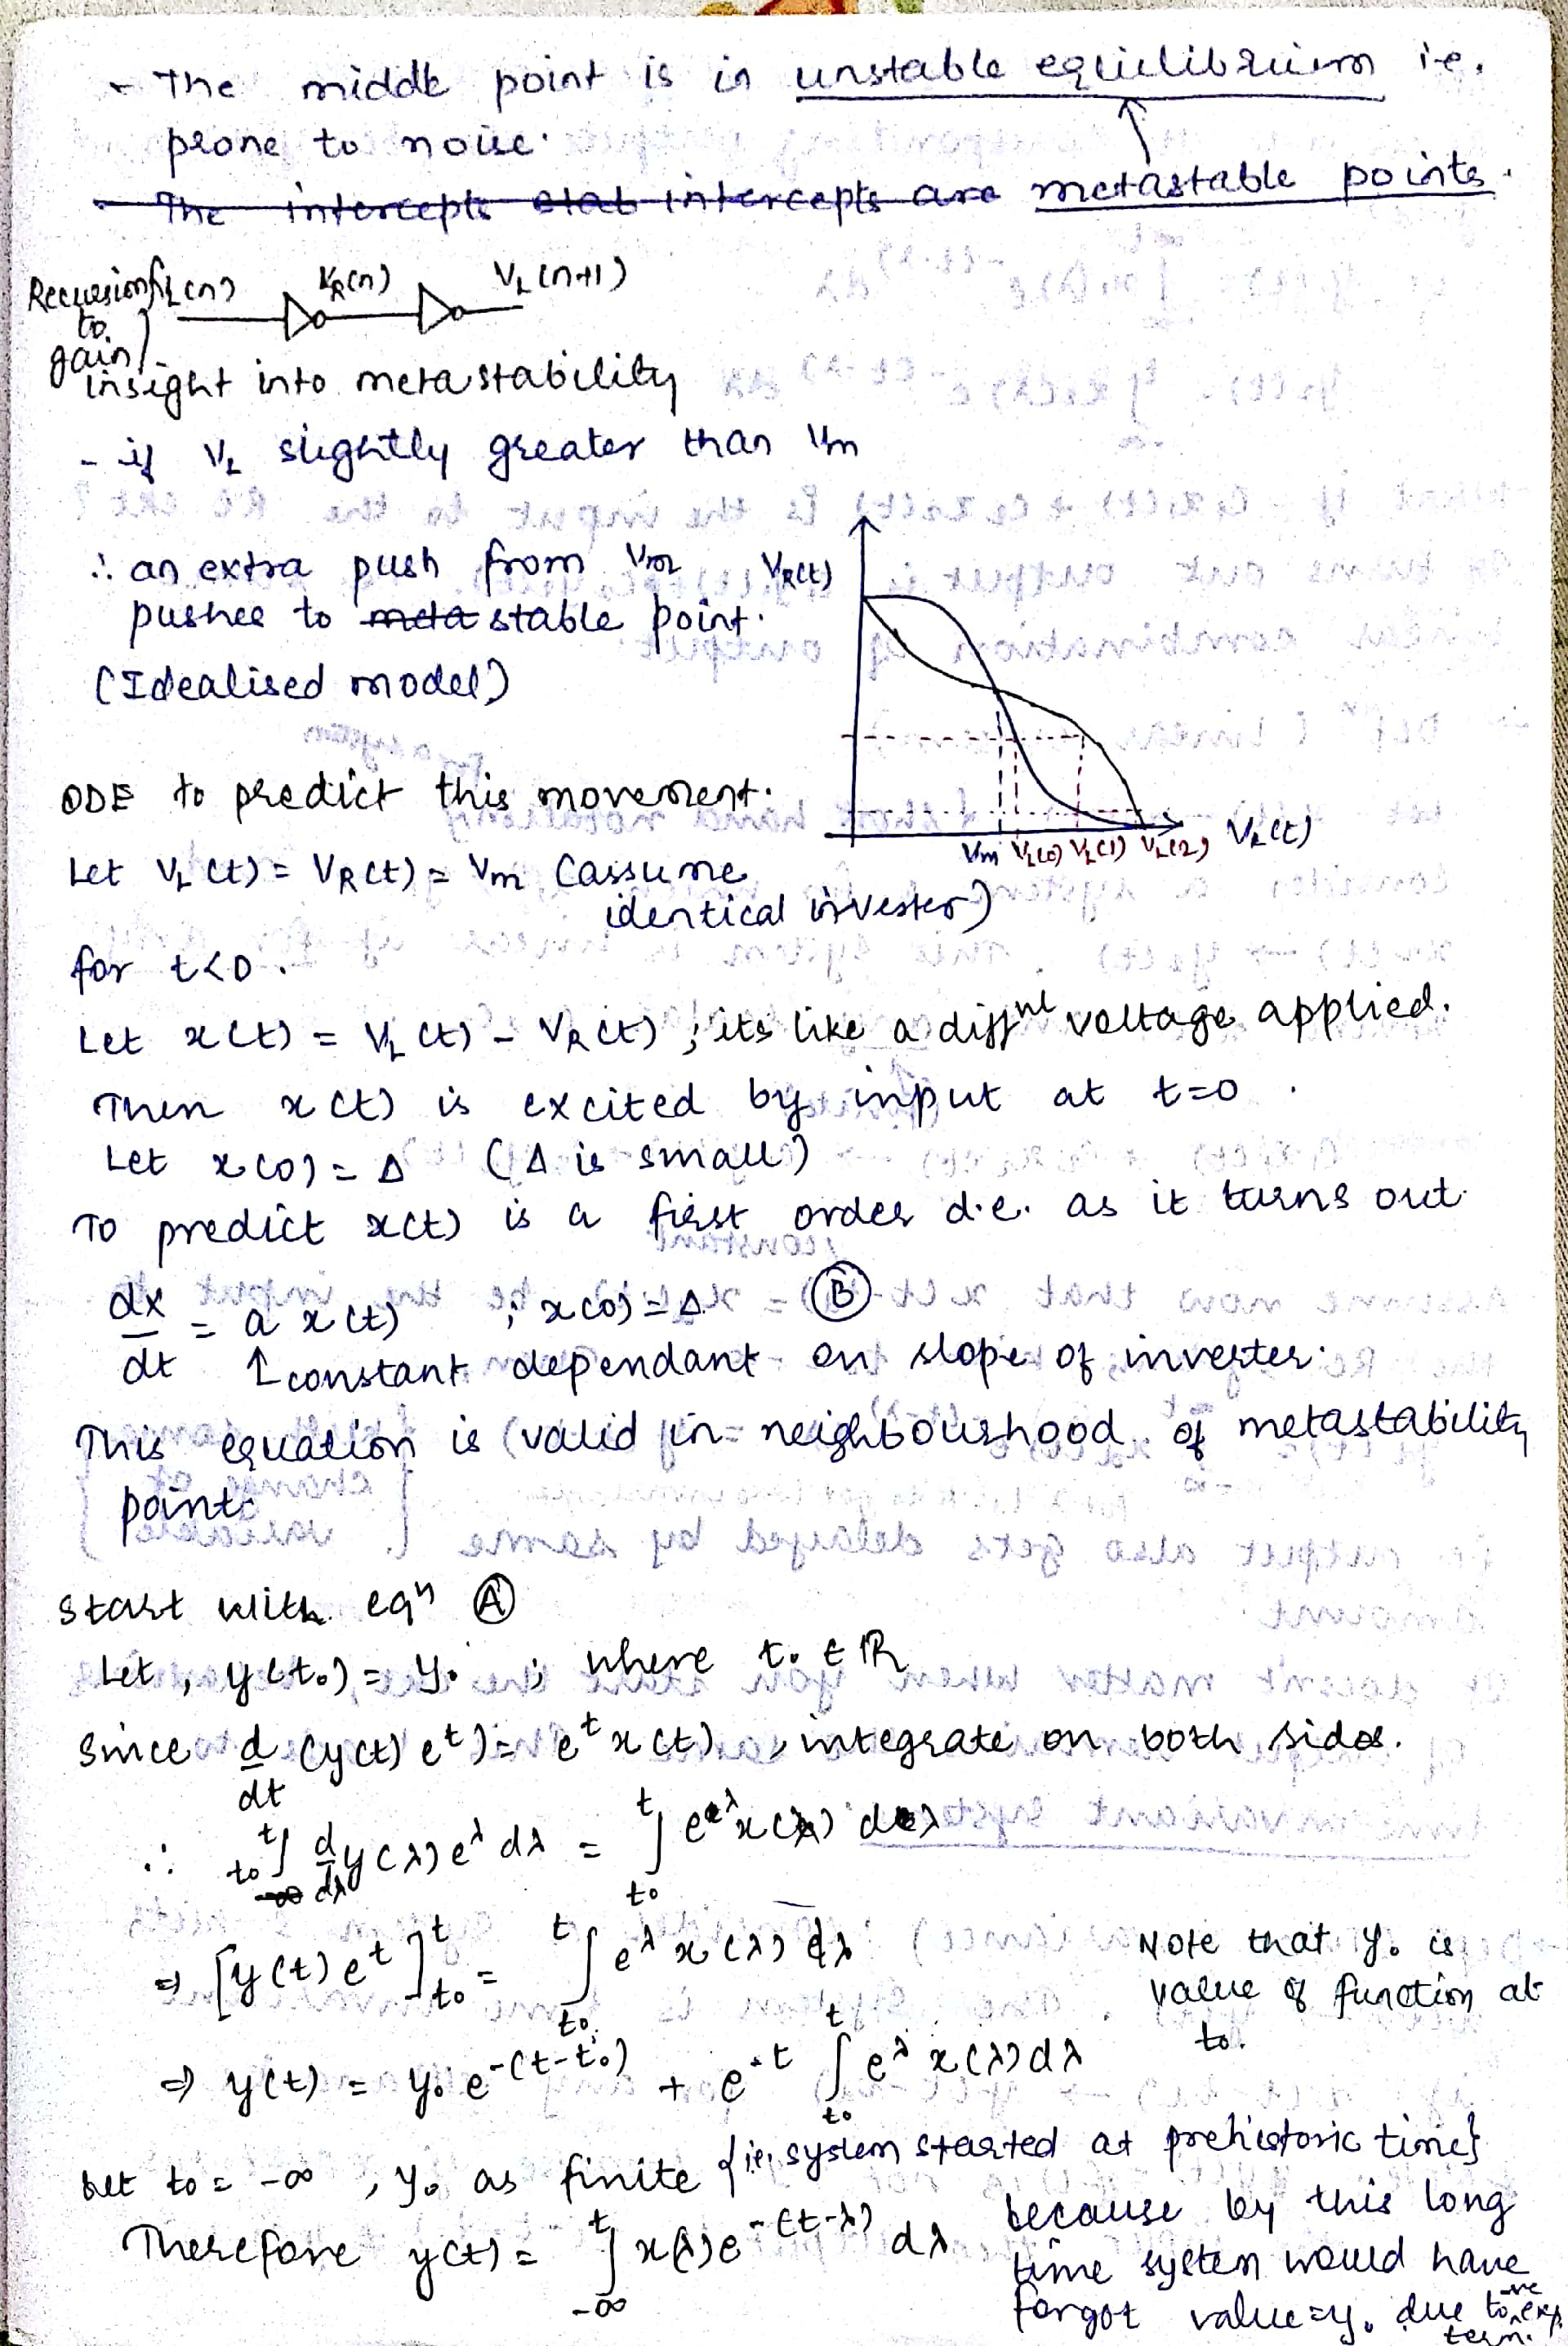 - The middle point is in unstable equilibrium i.e.
prone to noise.
- The intercepts stab intercepts are metastable points.
Recursion V_L(n) V_R(n) V_L(n+1)
to
gain
insight into metastability
- if V_L slightly greater than V_m
∴ an extra push from V_m
pushes to meta stable point.
(Idealised model)
V_R(t)
V_m V_L(0) V_L(1) V_L(2) V_L(t)
ODE to predict this movement.
Let V_L(t) = V_R(t) = V_m (assume
identical inverter)
for t<0.
Let x(t) = V_L(t) - V_R(t) ; its like a diffnl voltage applied.
Then x(t) is excited by input at t=0.
Let x(0) = Δ (Δ is small)
To predict x(t) is a first order d.e. as it turns out
dx/dt = a x(t) ; x(0) = Δ - Ⓑ
↑ constant dependant on slope of inverter.
This equation is valid in neighbourhood of metastability
point.
Start with eqn Ⓐ
Let, y(t₀) = y₀ ; where t₀ ∈ ℝ
Since d/dt (y(t) e^t) = e^t x(t), integrate on both sides.
∴ ∫_{t₀}^{t} d/dλ y(λ) e^λ dλ = ∫_{t₀}^{t} e^λ x(λ) dλ
⇒ [y(t) e^t]_{t₀}^{t} = ∫_{t₀}^{t} e^λ x(λ) dλ
Note that y₀ is
value of function at
t₀.
⇒ y(t) = y₀ e^{-(t-t₀)} + e^{-t} ∫_{t₀}^{t} e^λ x(λ) dλ
Let t₀ = -∞, y₀ as finite {i.e. system started at prehistoric time}
Therefore y(t) = ∫_{-∞}^{t} x(λ) e^{-(t-λ)} dλ
because by this long
time system would have
forgot value = y₀ due to -ve exp
term.